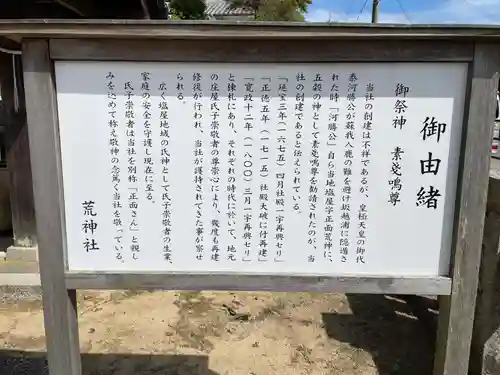 御由緒
御祭神　素戔嗚尊
当社の創建は不祥であるが、皇極天皇の御代
秦河勝公が蘇我入鹿の難を避け坂越浦に隠遁さ
れた時「河勝公」自ら当地塩屋字正面荒神に、
五穀の神として素戔嗚尊を勧請されたのが、当
社の創建であると伝えられている。
「延宝三年（一六七五）四月社殿一宇再興セリ」
「正徳五年（一七一五）社殿大破に付再建」
「寛政十二年（一八〇〇）三月一宇再興セリ」
と棟札にあり、それぞれの時代に於いて、地元
の庄屋氏子崇敬者の尊崇心により、幾度も再建
修復が行われ、当社が護持されてきた事が察せ
られる。
広く塩屋地域の氏神として氏子崇敬者の生業、
家庭の安全を守護し現在に至る。
氏子崇敬者は当社を別称「正面さん」と親し
みを込めて称え敬神の念篤く当社を敬っている。
荒神社